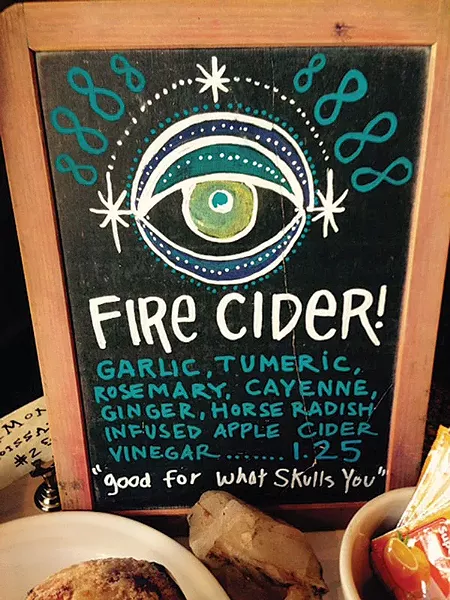 FIRE CIDER!
GARLIC, TUMERIC,
ROSEMARY, CAYENNE,
GINGER, HORSE RADISH
INFUSED APPLE CIDER
VINEGAR........1.25
"good for what Skulls You"